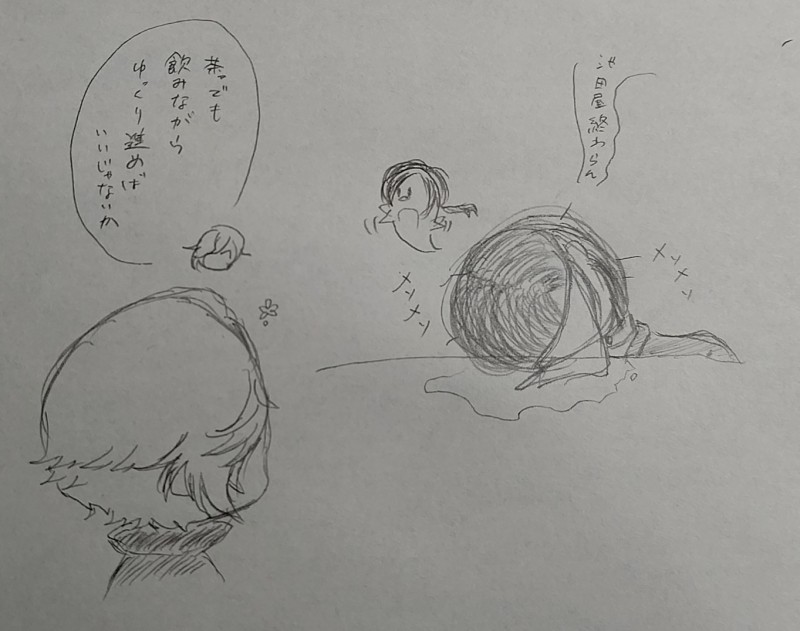 池田屋終わらん
メソメソ
メソメソ
茶でも
飲みながら
ゆっくり進めば
いいじゃないか